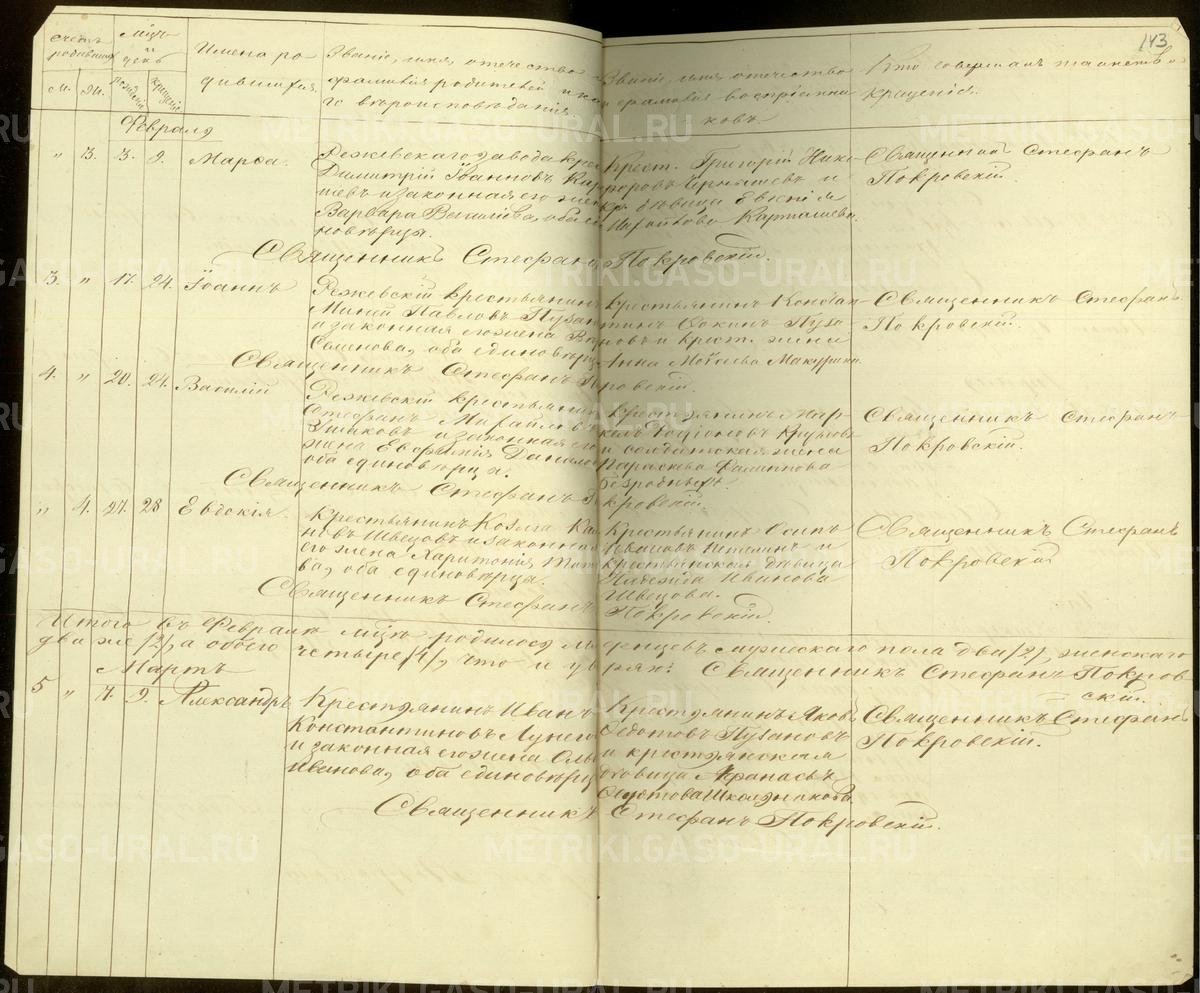 143
Счетъ родившихся
Мцъ и день
Имена родившихся.
Званіе, имя, отечество и фамилія родителей и какого вѣроисповѣданія.
Званіе, имя, отечество и фамилія воспріемниковъ.
Кто совершалъ таинство крещенія.
М. Ж. рожденія крещенія
Февраля
" 3. 3. 9. Марѳа.
Режевскаго завода крес
Димитрій Іоанновъ Кар
шевъ и законная его жен
Варвара
новѣрцы.
Крест. Григорій Ники-
форовъ Чернышевъ и
дѣвица Евкнія
Карташева.
Священникъ Стефанъ
Покровскій.
Священникъ Стефанъ Покровскій.
3. " 17. 24. Іоаннъ
Режевскій крестьянинъ
Миней Павловъ Пузан
и законная его жена
Семенова, оба единовѣрц
Крестьянинъ Констан-
тинъ Ѳокинъ Пуза-
новъ и крест. жена
Анна Моисеева Макурина.
Священникъ Стефанъ
Покровскій.
Священникъ Стефанъ Покровскій.
4. " 20. 24. Василій
Режевскій крестьянинъ
Стефанъ Михайловъ
Ушаковъ и законная его
жена Евфимія Данило
оба единовѣрцы.
Крестьянинъ Мар-
келъ Родіоновъ
и солдатская жена
Параскева Филиппова
Безродныхъ.
Священникъ Стефанъ
Покровскій.
Священникъ Стефанъ Покровскій.
" 4. 27. 28 Евдокія.
Крестьянинъ Козма
новъ Швецовъ и законная
его жена Харитонія
ва, оба единовѣрцы.
Крестьянинъ Осипъ
Ивановъ и
крестьянская дѣвица
Надежда Иванова
Швецова.
Священникъ Стефанъ
Покровскій
Священникъ Стефанъ Покровскій.
Итого въ Февралѣ мцѣ родилось младенцевъ мужескаго пола два /2/, женскаго
два же /2/, а обоего четыре /4/, что и увѣряю: Священникъ Стефанъ Покров-
скій.
Мартъ
5 " 7. 9. Александръ
Крестьянинъ Иванъ
Константиновъ
и законная его жена Оль
Иванова, оба единовѣрц
Крестьянинъ Яковъ
Ѳедотовъ Пузановъ
и крестьянская
дѣвица Афанась
Школьникова
Священникъ Стефанъ
Покровскій.
Священникъ Стефанъ Покровскій.
METRIKI.GASO-URAL.RU